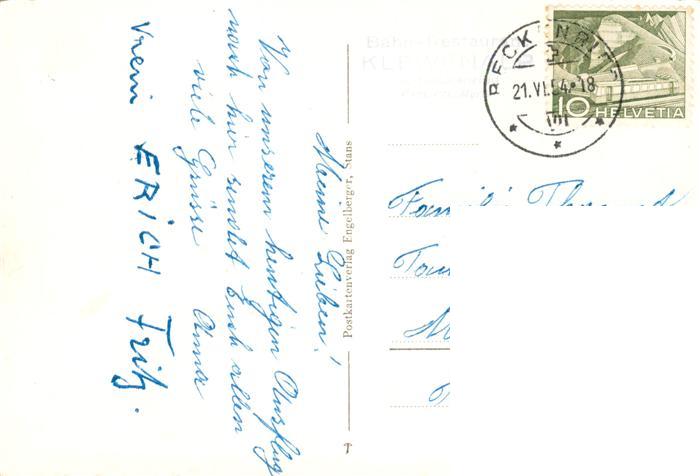 Meine Lieben!
Von unserem heutigen Ausflug
nach hier sendet Euch allen
viele Grüsse Anna
Vreni ERICH Fritz.
Postkartenverlag Engelberger, Stans
Bahn-Restaurant
KLEWENALP
BECKENRIED
21.VI.54.-18
10 HELVETIA
Famili